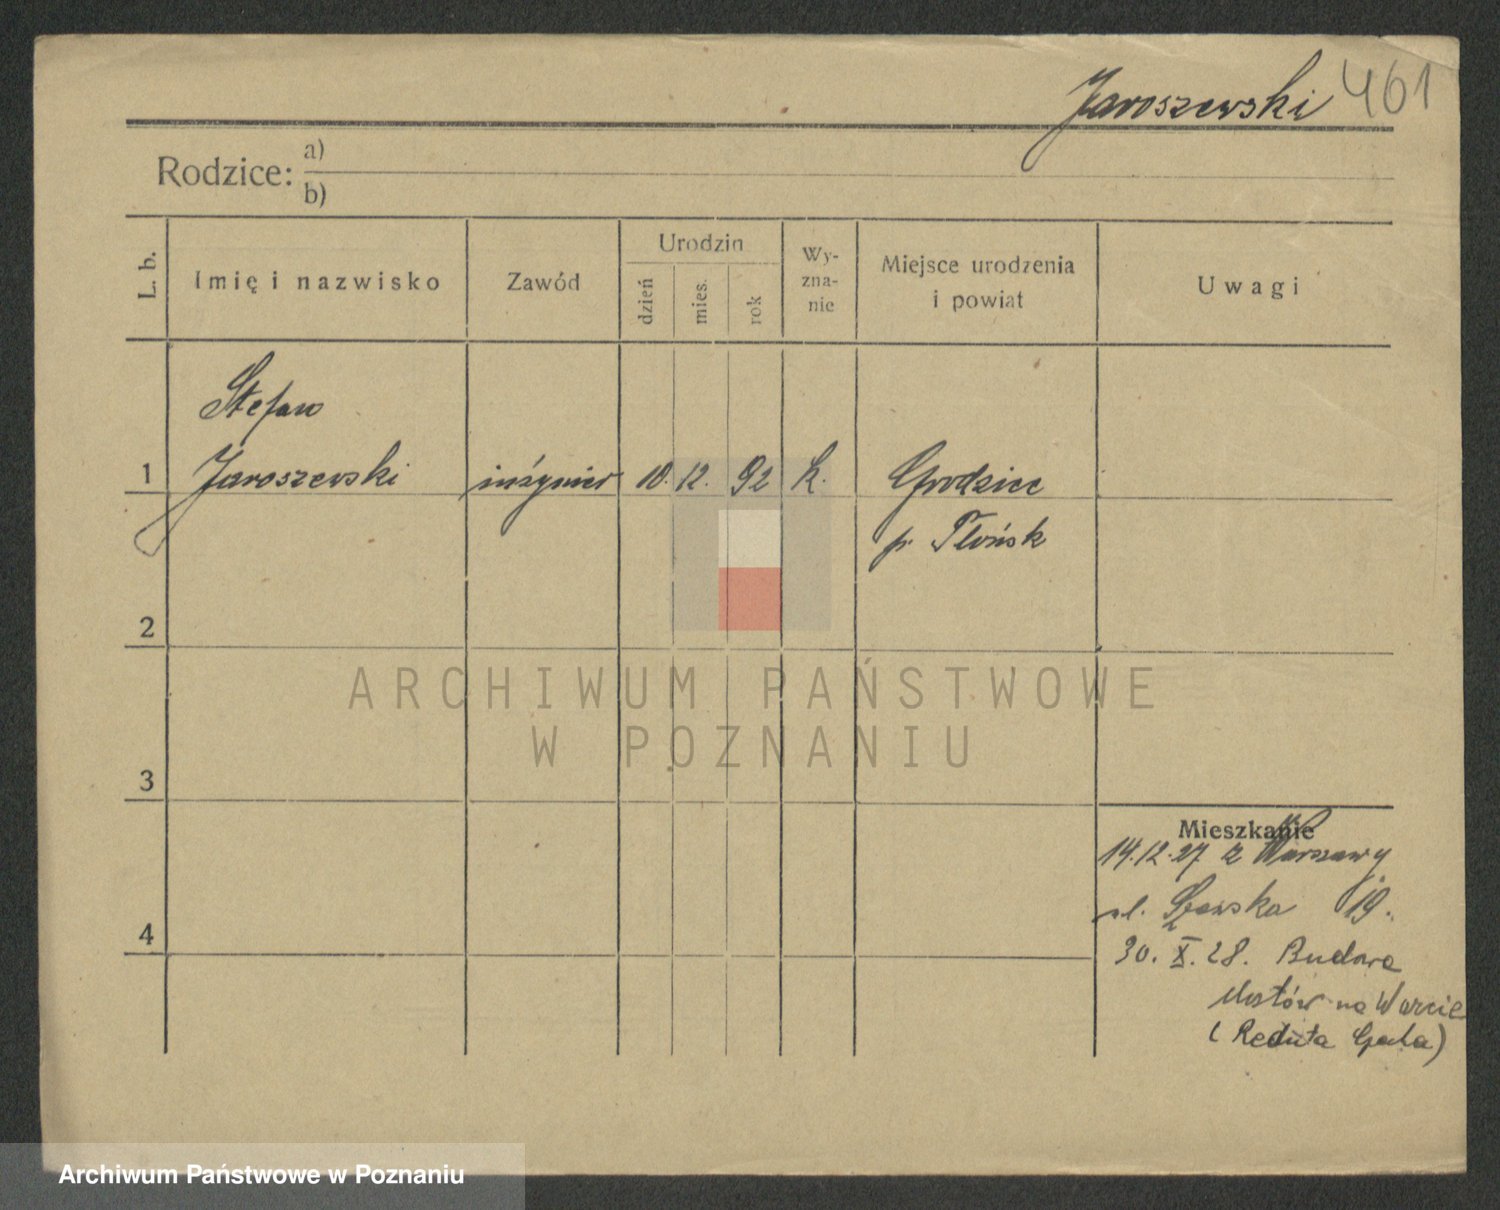 Jaroszewski 461
Rodzice: a)
b)
L. b. Imię i nazwisko Zawód Urodzin dzień mies. rok Wy-zna-nie Miejsce urodzenia i powiat Uwagi
Stefan
1 Jaroszewski inżynier 10. 12. 92 k. Grodziec
p. Płońsk
2
ARCHIWUM PAŃSTWOWE
W POZNANIU
3
Mieszkanie
14.12.27 z Warszawy
ul. 19.
4
30. X. 28. Budowa
Mostów na Warcie
(Reduta
Archiwum Państwowe w Poznaniu